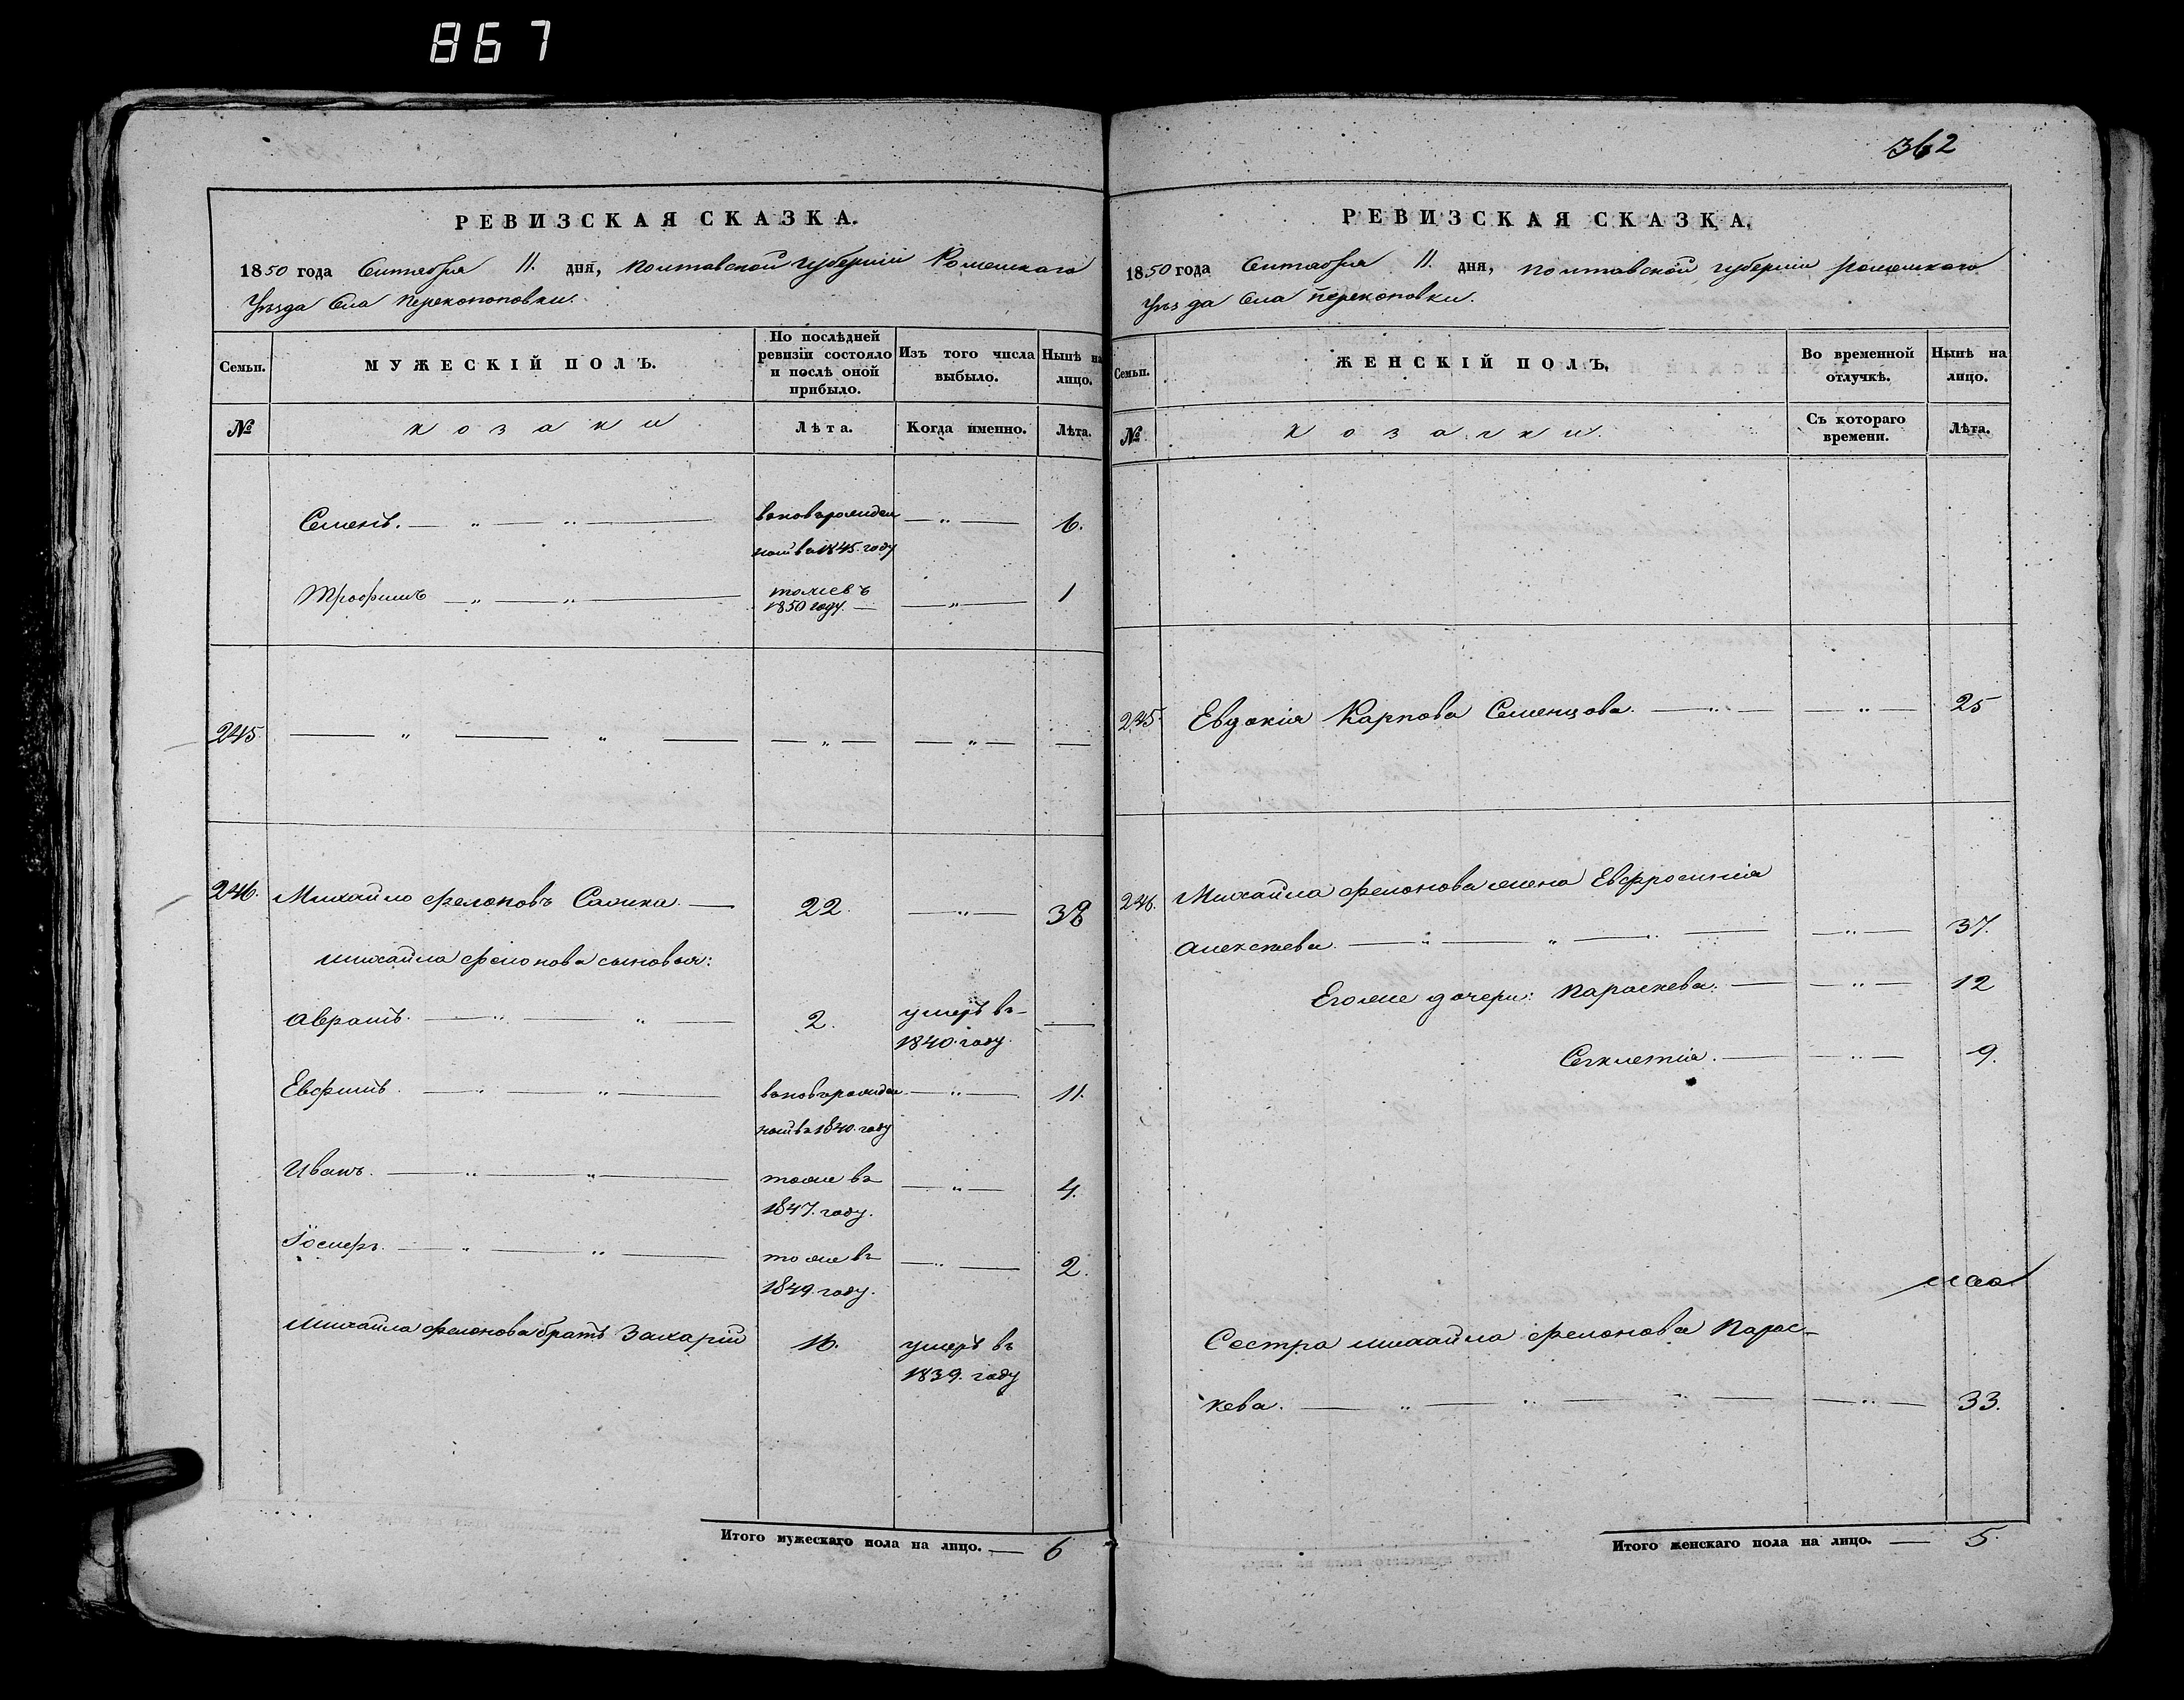 867
РЕВИЗСКАЯ СКАЗКА.
1850 года Сентября 11. дня, Полтавской губерніи Роменскаго
Уѣзда Села Перекоповки.
Семьи.
МУЖЕСКІЙ ПОЛЪ.
По послѣдней ревизіи состояло и послѣ оной прибыло.
Изъ того числа выбыло.
Нынѣ на лицо.
№
козаки
Лѣта.
Когда именно.
Лѣта.
Семенъ. вновьрожден 6.
ной въ 1845. году
Трофимъ тоже въ 1
1850 году.
245.
246. Михайло Филоновъ 22. 38
Михайла Филонова сыновья:
Аврамъ. 2. умеръ въ
1840. году.
Евфимъ. вновьрожден 11.
ной въ 1840. году
Иванъ. тоже въ 4.
1847. году.
тоже въ 2.
1849. году.
Михайла Филонова братъ Захарій 16. умеръ въ
1839. году
Итого мужескаго пола на лицо. 6
362
РЕВИЗСКАЯ СКАЗКА.
1850 года Сентября 11. дня, Полтавской губерніи Роменскаго
Уѣзда Села Перекоповки.
Семьи.
ЖЕНСКІЙ ПОЛЪ.
Во временной отлучкѣ.
Нынѣ на лицо.
№
козачки.
Съ котораго времени.
Лѣта.
245. Евдокія Карпова Семенцова. 25
246. Михайла Филонова жена Евфросинія
Алексѣева. 37.
Его же дочери: Параскева. 12
Секлетія. 9.
Сестра Михайла Филонова Парас-
кева. 33.
Итого женскаго пола на лицо. 5.